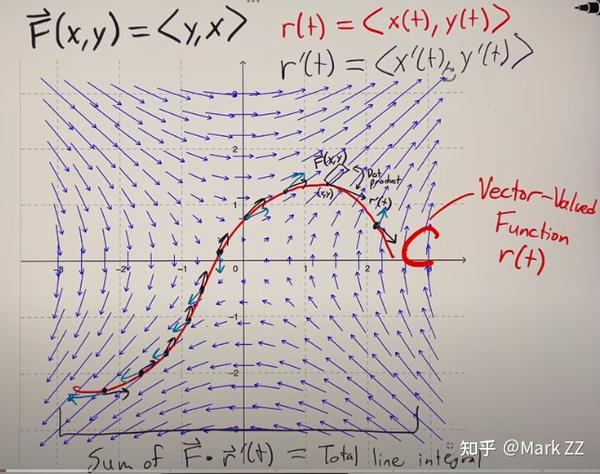 F⃗(x,y) = <y,x>
r(t) = <x(t), y(t)>
r'(t) = <x'(t), y'(t)>
3
2
1
-3
-2
-1
0
1
2
3
-1
-2
F⃗(x,y)
Dot
product
(x,y)
r'(t)
C
Vector-Valued
Function
r(t)
Sum of F⃗•r⃗'(t) = Total line integral
知乎 @Mark ZZ